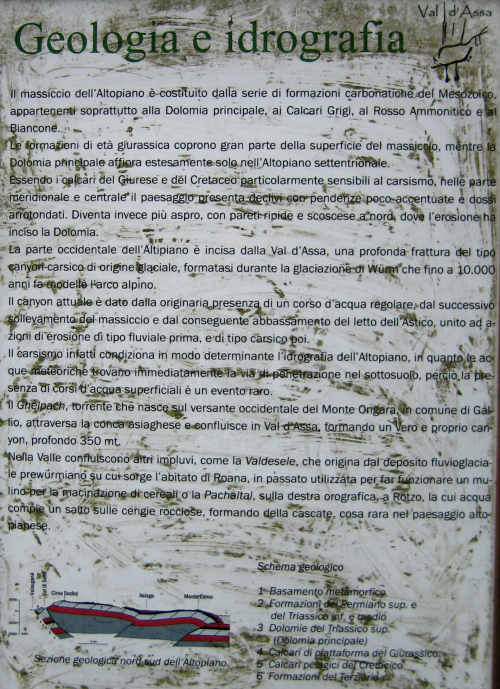 Val d'Assa
Geologia e idrografia
Il massiccio dell'Altopiano è costituito dalla serie di formazioni carbonatiche del Mesozoico,
appartenenti soprattutto alla Dolomia principale, ai Calcari Grigi, al Rosso Ammonitico e al
Biancone.
Le formazioni di età giurassica coprono gran parte della superficie del massiccio, mentre la
Dolomia principale affiora estesamente solo nell'Altopiano settentrionale.
Essendo i calcari del Giurese e del Cretaceo particolarmente sensibili al carsismo, nelle parte
meridionale e centrale il paesaggio presenta declivi con pendenze poco accentuate e dossi
arrotondati. Diventa invece più aspro, con pareti ripide e scoscese a nord, dove l'erosione ha
inciso la Dolomia.
La parte occidentale dell'Altipiano è incisa dalla Val d'Assa, una profonda frattura del tipo
canyon carsico di origine glaciale, formatasi durante la glaciazione di Würm che fino a 10.000
anni fa modellò l'arco alpino.
Il canyon attuale è dato dalla originaria presenza di un corso d'acqua regolare, dal successivo
sollevamento del massiccio e dal conseguente abbassamento del letto dell'Astico, unito ad a-
zioni di erosione di tipo fluviale prima, e di tipo carsico poi.
Il carsismo infatti condiziona in modo determinante l'idrografia dell'Altopiano, in quanto le ac-
que meteoriche trovano immediatamente la via di penetrazione nel sottosuolo, perciò la pre-
senza di corsi d'acqua superficiali è un evento raro.
Il Ghelpach, torrente che nasce sul versante occidentale del Monte Ongara, in comune di Gal-
lio, attraversa la conca asiaghese e confluisce in Val d'Assa, formando un vero e proprio can-
yon, profondo 350 mt.
Nella Valle confluiscono altri impluvi, come la Valdesele, che origina dal deposito fluvioglacia-
le prewürmiano su cui sorge l'abitato di Roana, in passato utilizzata per far funzionare un mu-
lino per la macinazione di cereali o la Pachältal, sulla destra orografica, a Rotzo, la cui acqua
compie un salto sulle cengie rocciose, formando della cascate, cosa rara nel paesaggio alto-
pianese.
Schema geologico
1 Basamento metamorfico
2 Formazioni del Permiano sup. e
del Triassico inf. e medio
3 Dolomie del Triassico sup.
(Dolomia principale)
4 Calcari di piattaforma del Giurassico.
5 Calcari pelagici del Cretacico
6 Formazioni del Terziario
Asiago
Sezione geologica nord sud dell'Altopiano.